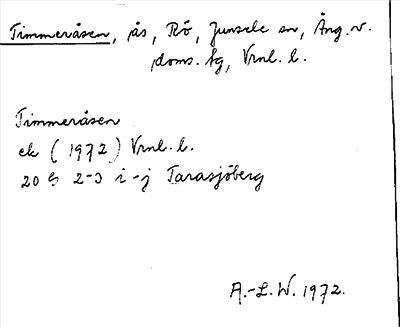 Timmeråsen, ås, Rö, Junsele sn, Ång. v.
doms. lg, Vrnl. l.
Timmeråsen
ek (1972) Vrnl. l.
20 G 2-3 i-j Tarasjöberg
A.-L.W. 1972.